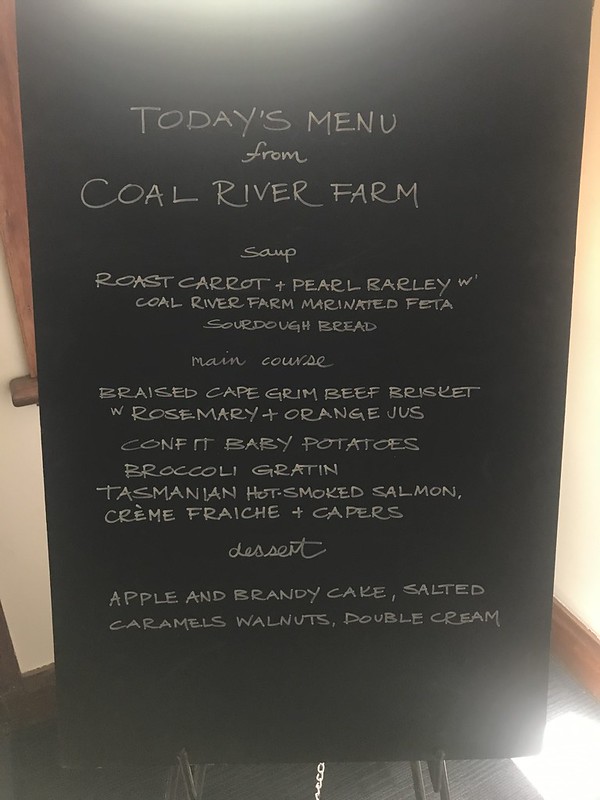 TODAY'S MENU
from
COAL RIVER FARM
soup
ROAST CARROT + PEARL BARLEY w'
COAL RIVER FARM MARINATED FETA
SOURDOUGH BREAD
main course
BRAISED CAPE GRIM BEEF BRISKET
w ROSEMARY + ORANGE JUS
CONFIT BABY POTATOES
BROCCOLI GRATIN
TASMANIAN HOT-SMOKED SALMON,
CRÈME FRAICHE + CAPERS
dessert
APPLE AND BRANDY CAKE, SALTED
CARAMELS WALNUTS, DOUBLE CREAM